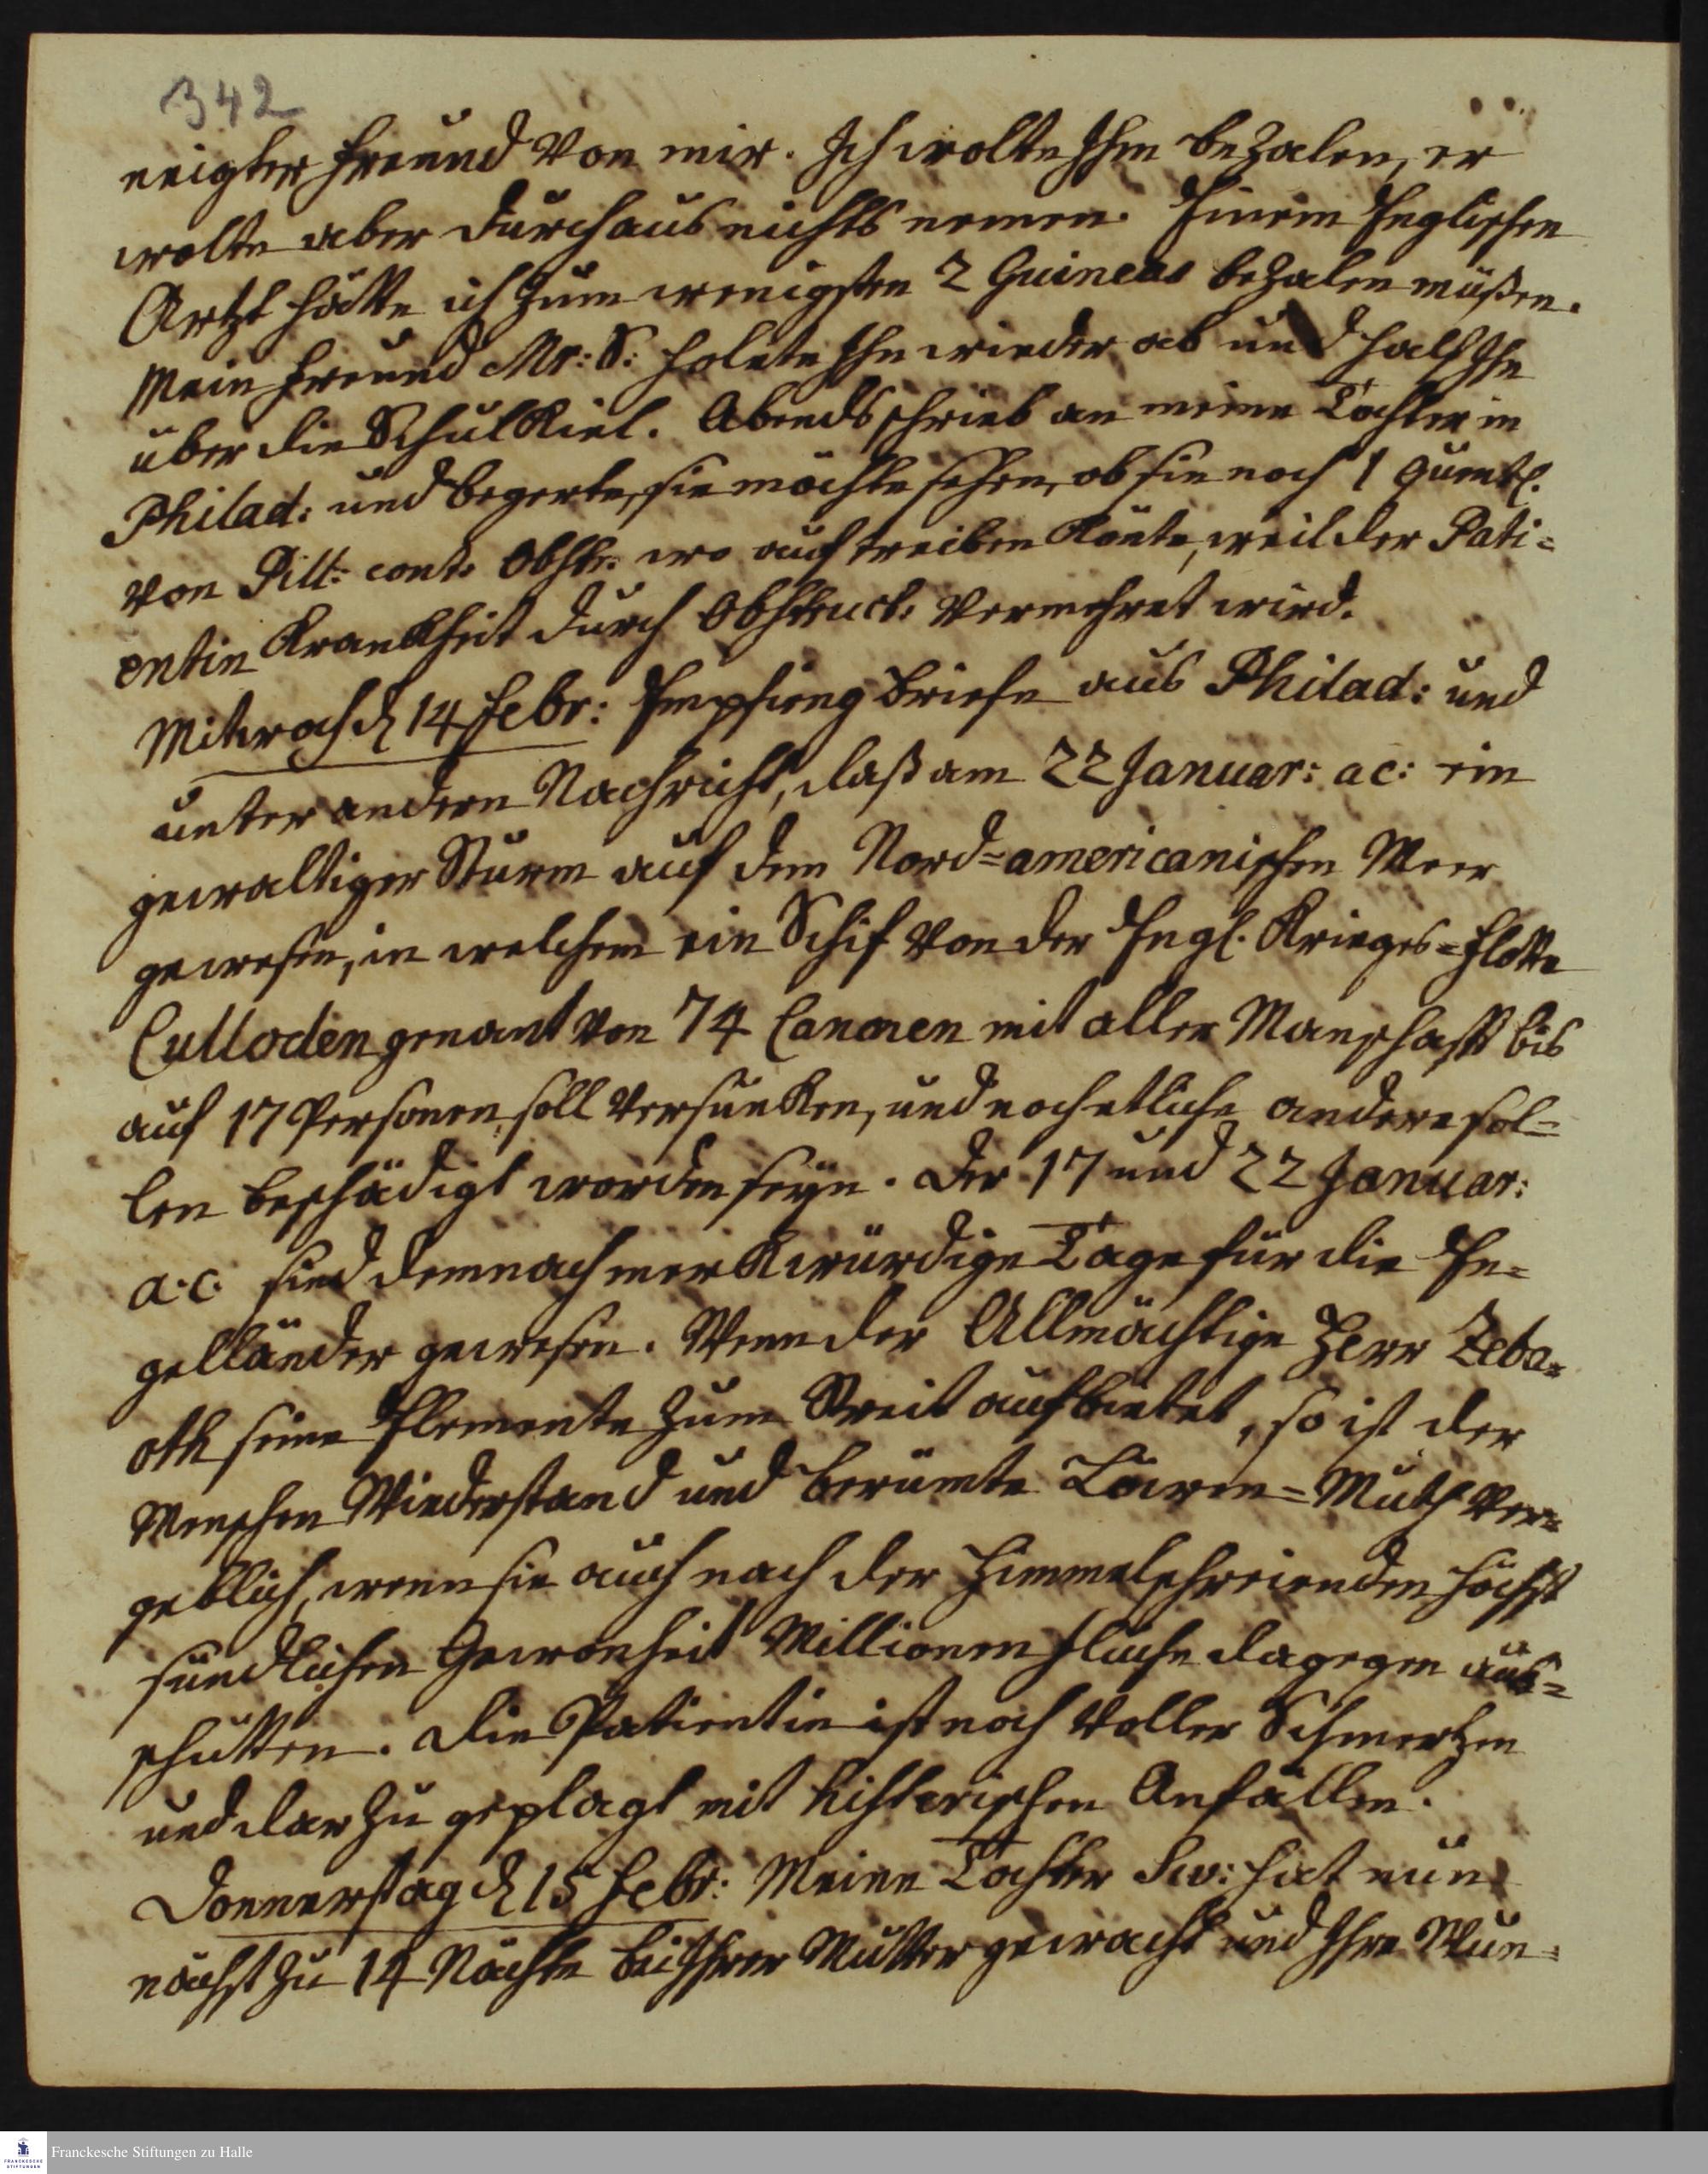 342
neigter Freund von mir. Ich wolte Ihm bezalen, er
wolte aber durchaus nichts nemen. Einem Englischen
Artzt hätte ich zum wenigsten 2 Guineas bezalen müßen.
Mein Freund Mr: S: holete Ihn wieder ab und half Ihn
über die Schulkiel. Abends schrieb an meine Tochter in
Philad: und begerte, sie möchte sehen, ob sie noch 1 quentl.
von Pill: cont: Obstr. wo auftreiben könte, weil der Pati=
entin Krankheit durch Obstruct: vermehret wird.
Mitwoch d 14 Febr: Empfieng Briefe aus Philad: und
unter andern Nachricht, daß am 22 Januar: ac: ein
gewaltiger Sturm auf dem Nord=americanischen Meer
gewesen, in welchem ein Schif von der Engl. Krieges=Flotte
Culloden genant von 74 Canonen mit aller Manschaft bis
auf 17 Personen, soll versunken, und noch etliche andere sol=
len beschädigt worden seyn. Der 17 und 22 Januar:
a.c. sind demnach merkwürdige Tage für die En=
gelländer gewesen. Wenn der Allmächtige Herr Zeba=
oth seine Elemente zum Streit aufbietet, so ist der
Menschen Wiederstand und berümte Löwen=Muth ver=
geblich, wenn sie auch nach der Himmelschreienden höchst
sündlichen Gewonheit Millionen Flüche dagegen aus=
schütten. Die Patientin ist noch voller Schmertzen
und darzu geplagt mit histerischen Anfällen.
Donnerstag d 15 Febr: Meine Tochter Sw: hat nun
nächst zu 14 Nächte bei Ihrer Mutter gewacht und Ihre Wun=
Franckesche Stiftungen zu Halle
FRANCKESCHE
STIFTUNGEN